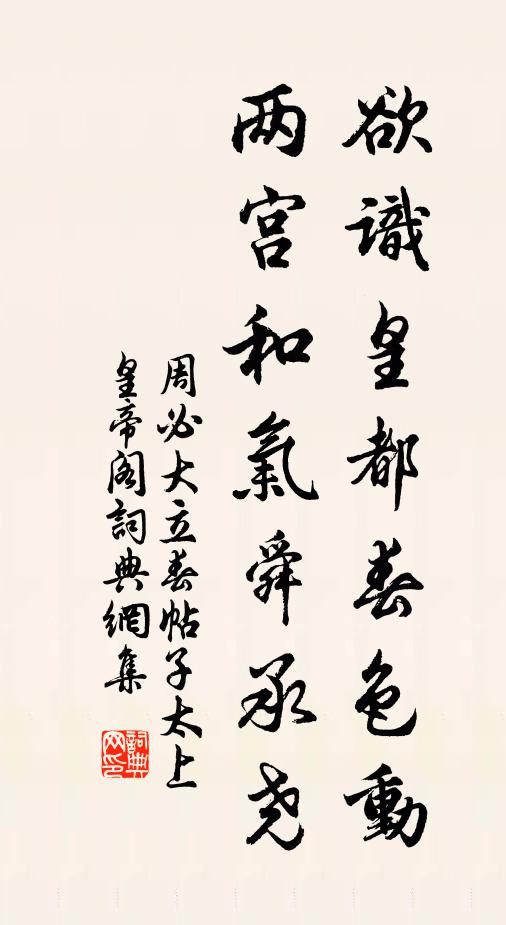 欲識皇都春色動
两宫和氣舜承尧
周必大立春帖子太上
皇帝阁詞典網集
詞典网印